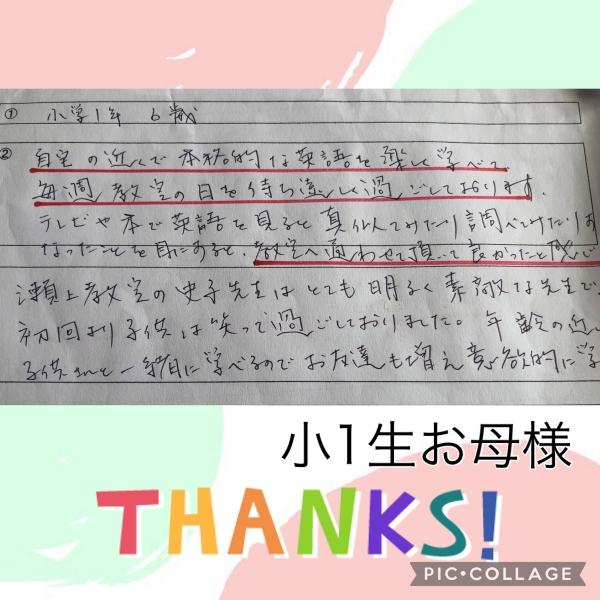 ① 小学1年 6歳
② 自宅の近くで本格的な英語を楽しく学べて
毎週教室の日を待ち遠しく過ごしております。
テレビや本で英語を見ると真似してみたり調べてみたり
なったことを耳にすると、教室へ通わせて頂いて良かったと感じ
瀬上教室の史子先生はとても明るく素敵な先生で、
初回より子供は笑って過ごしておりました。年齢の近い
子供さんと一緒に学べるのでお友達も増え意欲的に学
小1生お母様
THANKS!
PIC•COLLAGE